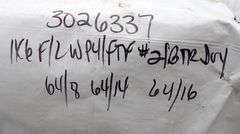 3026337
1X6 F/L WP4/FTF #2/BTR Dry
64/8 64/14 64/16